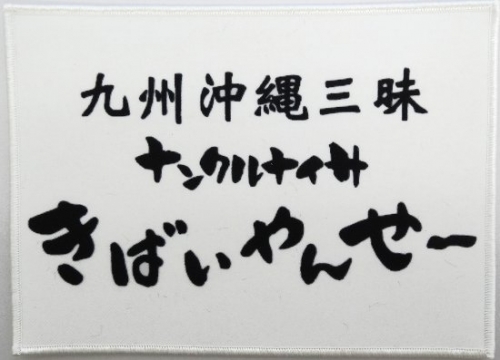 九州沖縄三昧
ナンクルナイサ
きばいやんせー